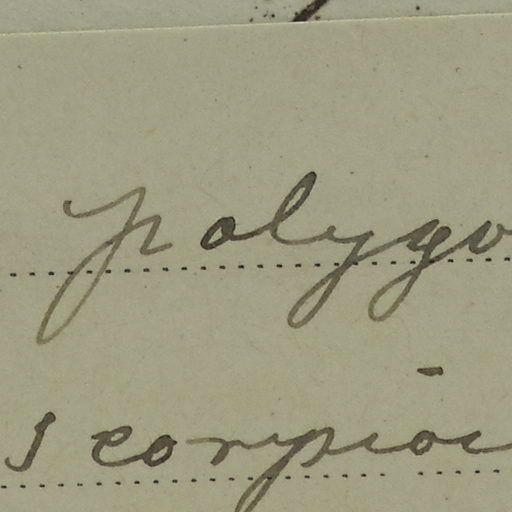 polygo
scorpioi